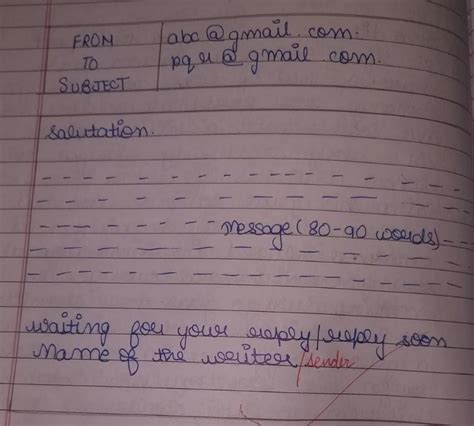 FROM abc@gmail.com.
TO pqr@gmail.com.
SUBJECT
Salutation.
message (80-90 words)
waiting for your reply/reply soon
Name of the writer/sender